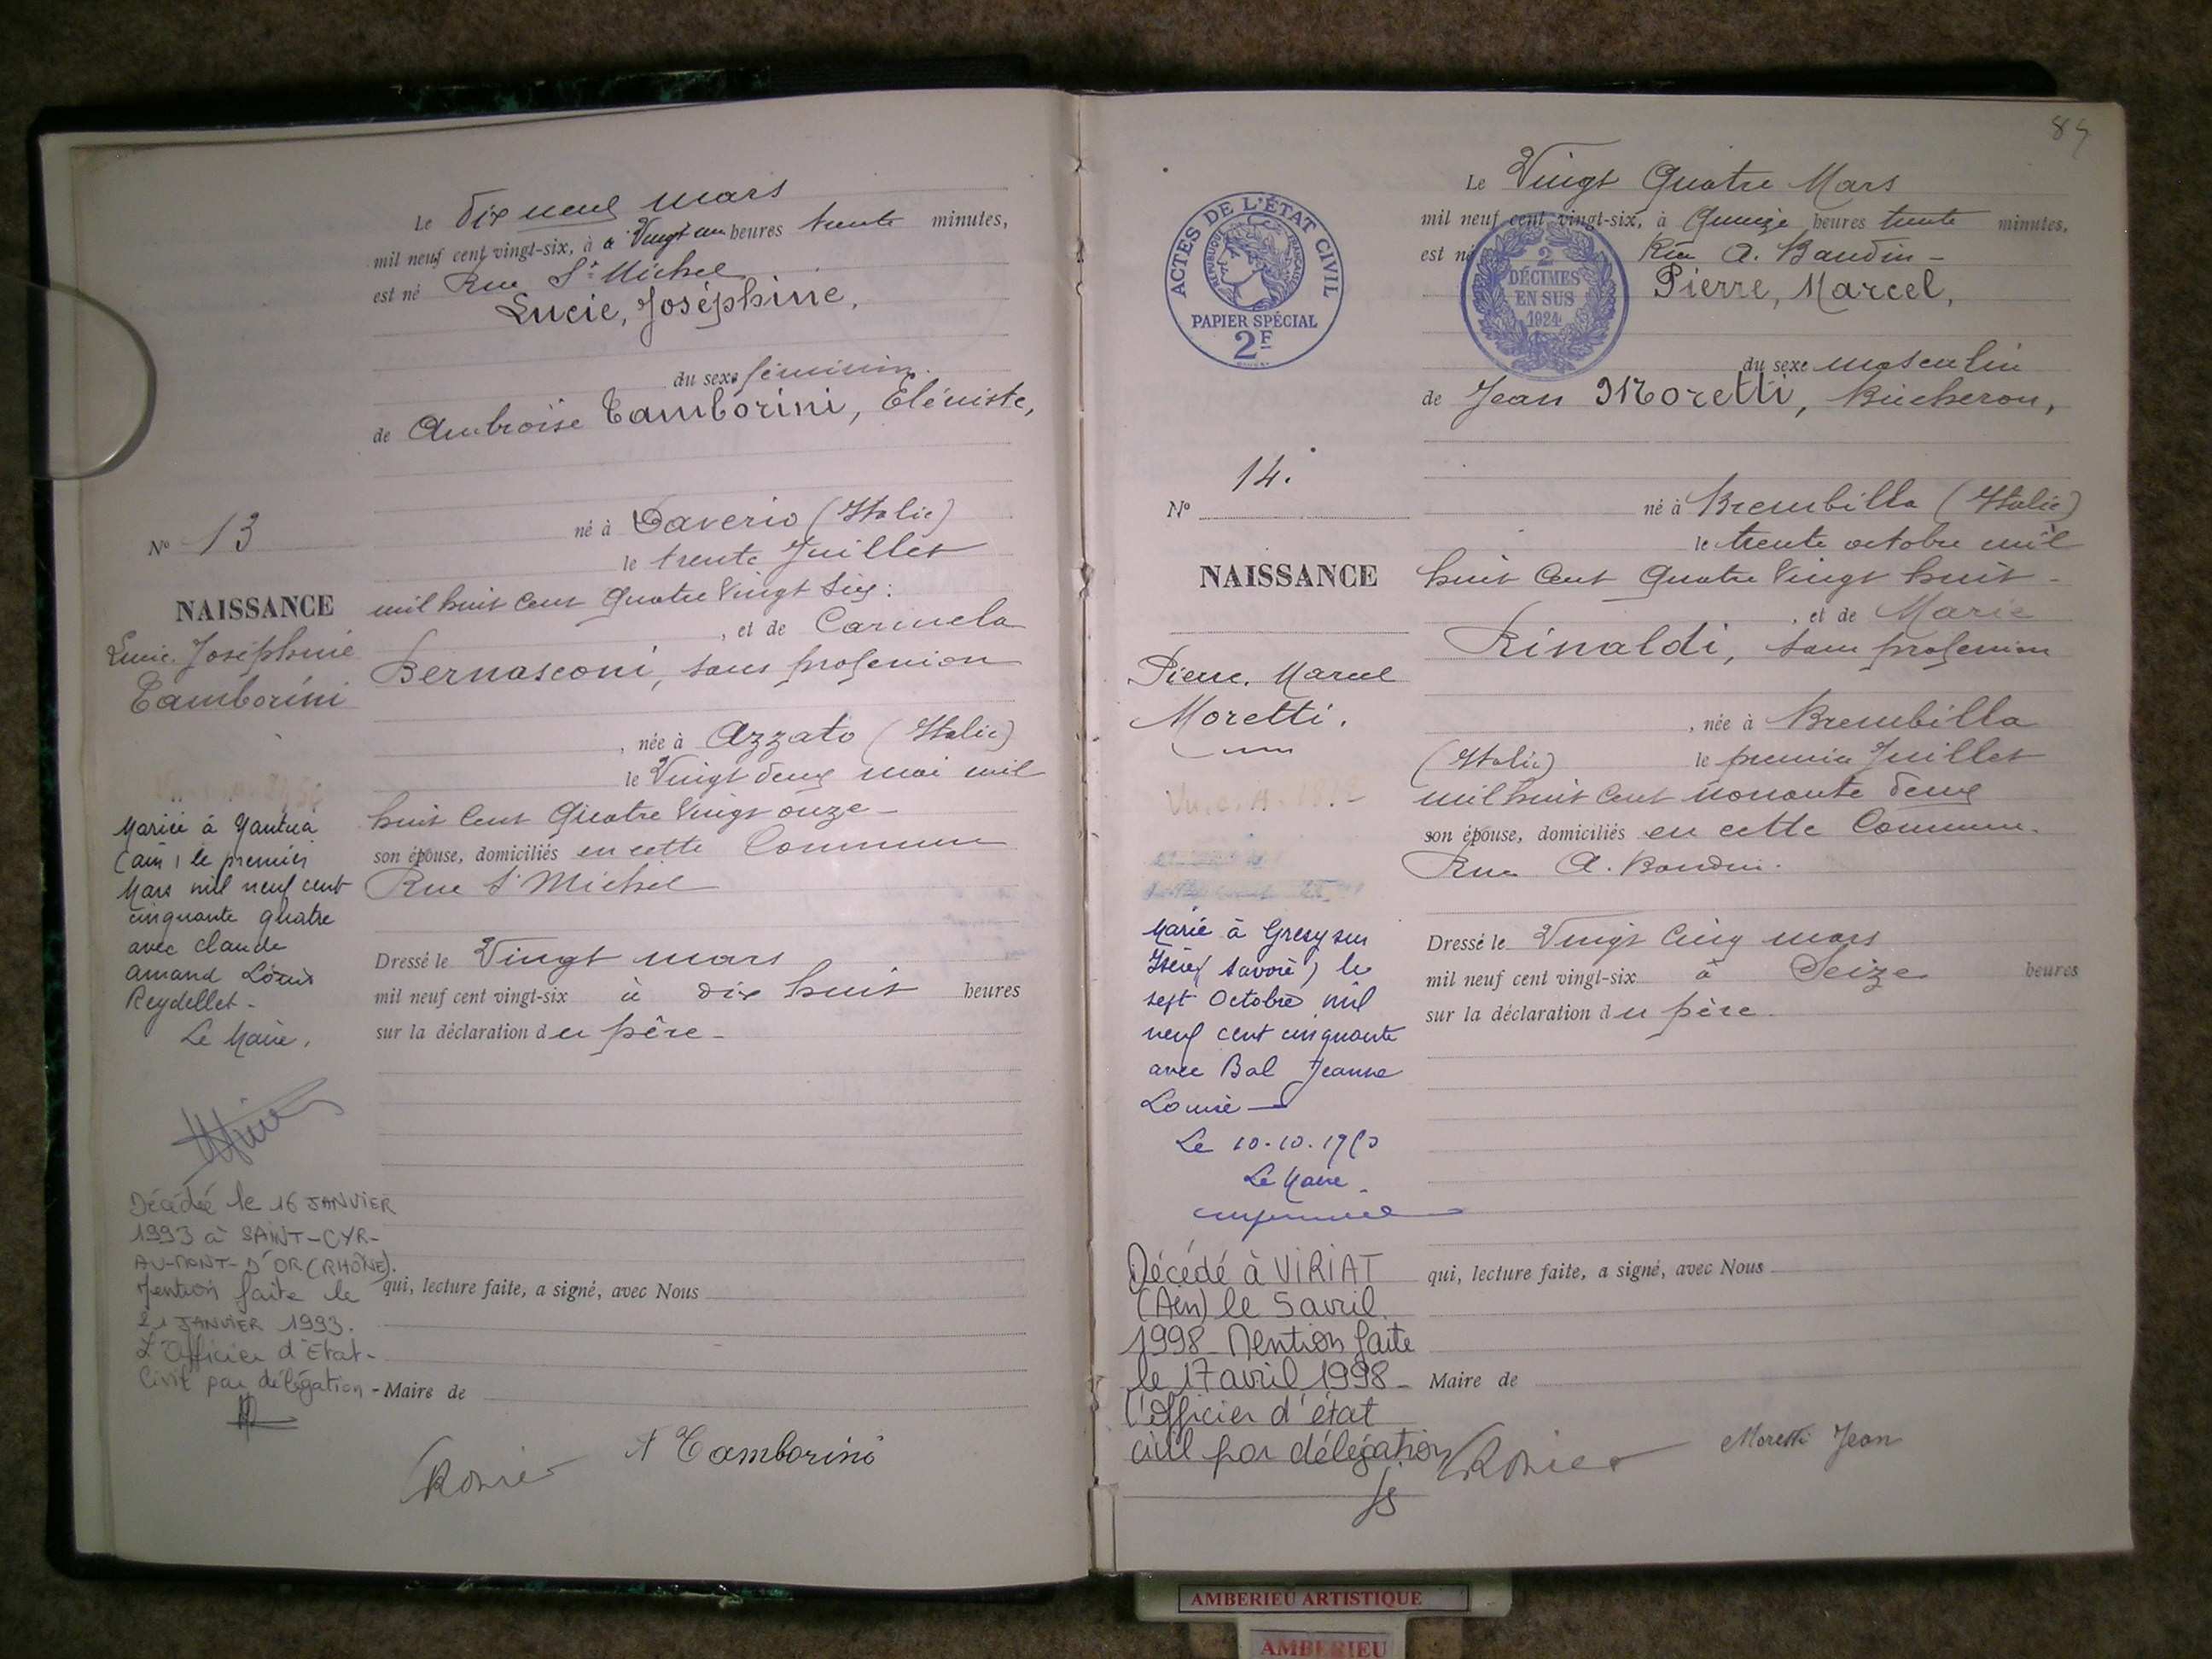 Le Dix neuf mars
mil neuf cent vingt-six, à Vingt un heures trente minutes,
est né Rue St Michel
Lucie, Joséphine,
du sexe féminin.
de Ambroise Tamborini, Eléniste,
né à Daverio (Italie)
le trente Juillet
mil huit cent quatre Vingt Six:
, et de Carmela
Bernasconi, sans profession
, née à Azzato (Italie)
le Vingt deux mai mil
huit cent Quatre Vingt onze -
son épouse, domiciliés en cette Commune
Rue St Michel
Dressé le Vingt mars
mil neuf cent vingt-six à dix huit heures
sur la déclaration du père -
qui, lecture faite, a signé, avec Nous
Maire de
A Tamborini
No 13
NAISSANCE
Lucie Joséphine
Tamborini
Mariée à Nantua
(Ain) le premier
Mars mil neuf cent
cinquante quatre
avec Claude
Amand Louis
Reydellet -
Le Maire.
Décédée le 16 JANVIER
1993 à SAINT-CYR-
AU-MONT-D'OR (RHÔNE).
Mention faite le
21 JANVIER 1993.
L'Officier d'Etat-
Civil par délégation -
84
ACTES DE L'ÉTAT CIVIL
RÉPUBLIQUE FRANÇAISE
PAPIER SPÉCIAL
2F
2
DÉCIMES
EN SUS
1924
Le Vingt Quatre Mars
mil neuf cent vingt-six, à Quinze heures trente minutes,
est né Rue A. Baudin -
Pierre, Marcel,
du sexe masculin
de Jean Moretti, Bûcheron,
né à Brembilla (Italie)
le trente octobre mil
huit Cent Quatre Vingt huit -
, et de Marie
Rinaldi, sans profession
, née à Brembilla
(Italie) le premier Juillet
mil huit Cent nonante deux
son épouse, domiciliés en cette Commune.
Rue A. Baudin.
Dressé le Vingt Cinq mars
mil neuf cent vingt-six à Seize heures
sur la déclaration du père.
qui, lecture faite, a signé, avec Nous
Maire de
Moretti Jean
No 14.
NAISSANCE
Pierre, Marcel
Moretti.
Marié à Gresy sur
Isère (Savoie) le
sept Octobre mil
neuf cent cinquante
avec Bal Jeanne
Louise
Le 10-10-1950
Le Maire
Décédé à VIRIAT
(Ain) le 5 avril
1998 - Mention faite
le 17 avril 1998 -
l'officier d'état
civil par délégation
AMBERIEU ARTISTIQUE
AMBERIEU